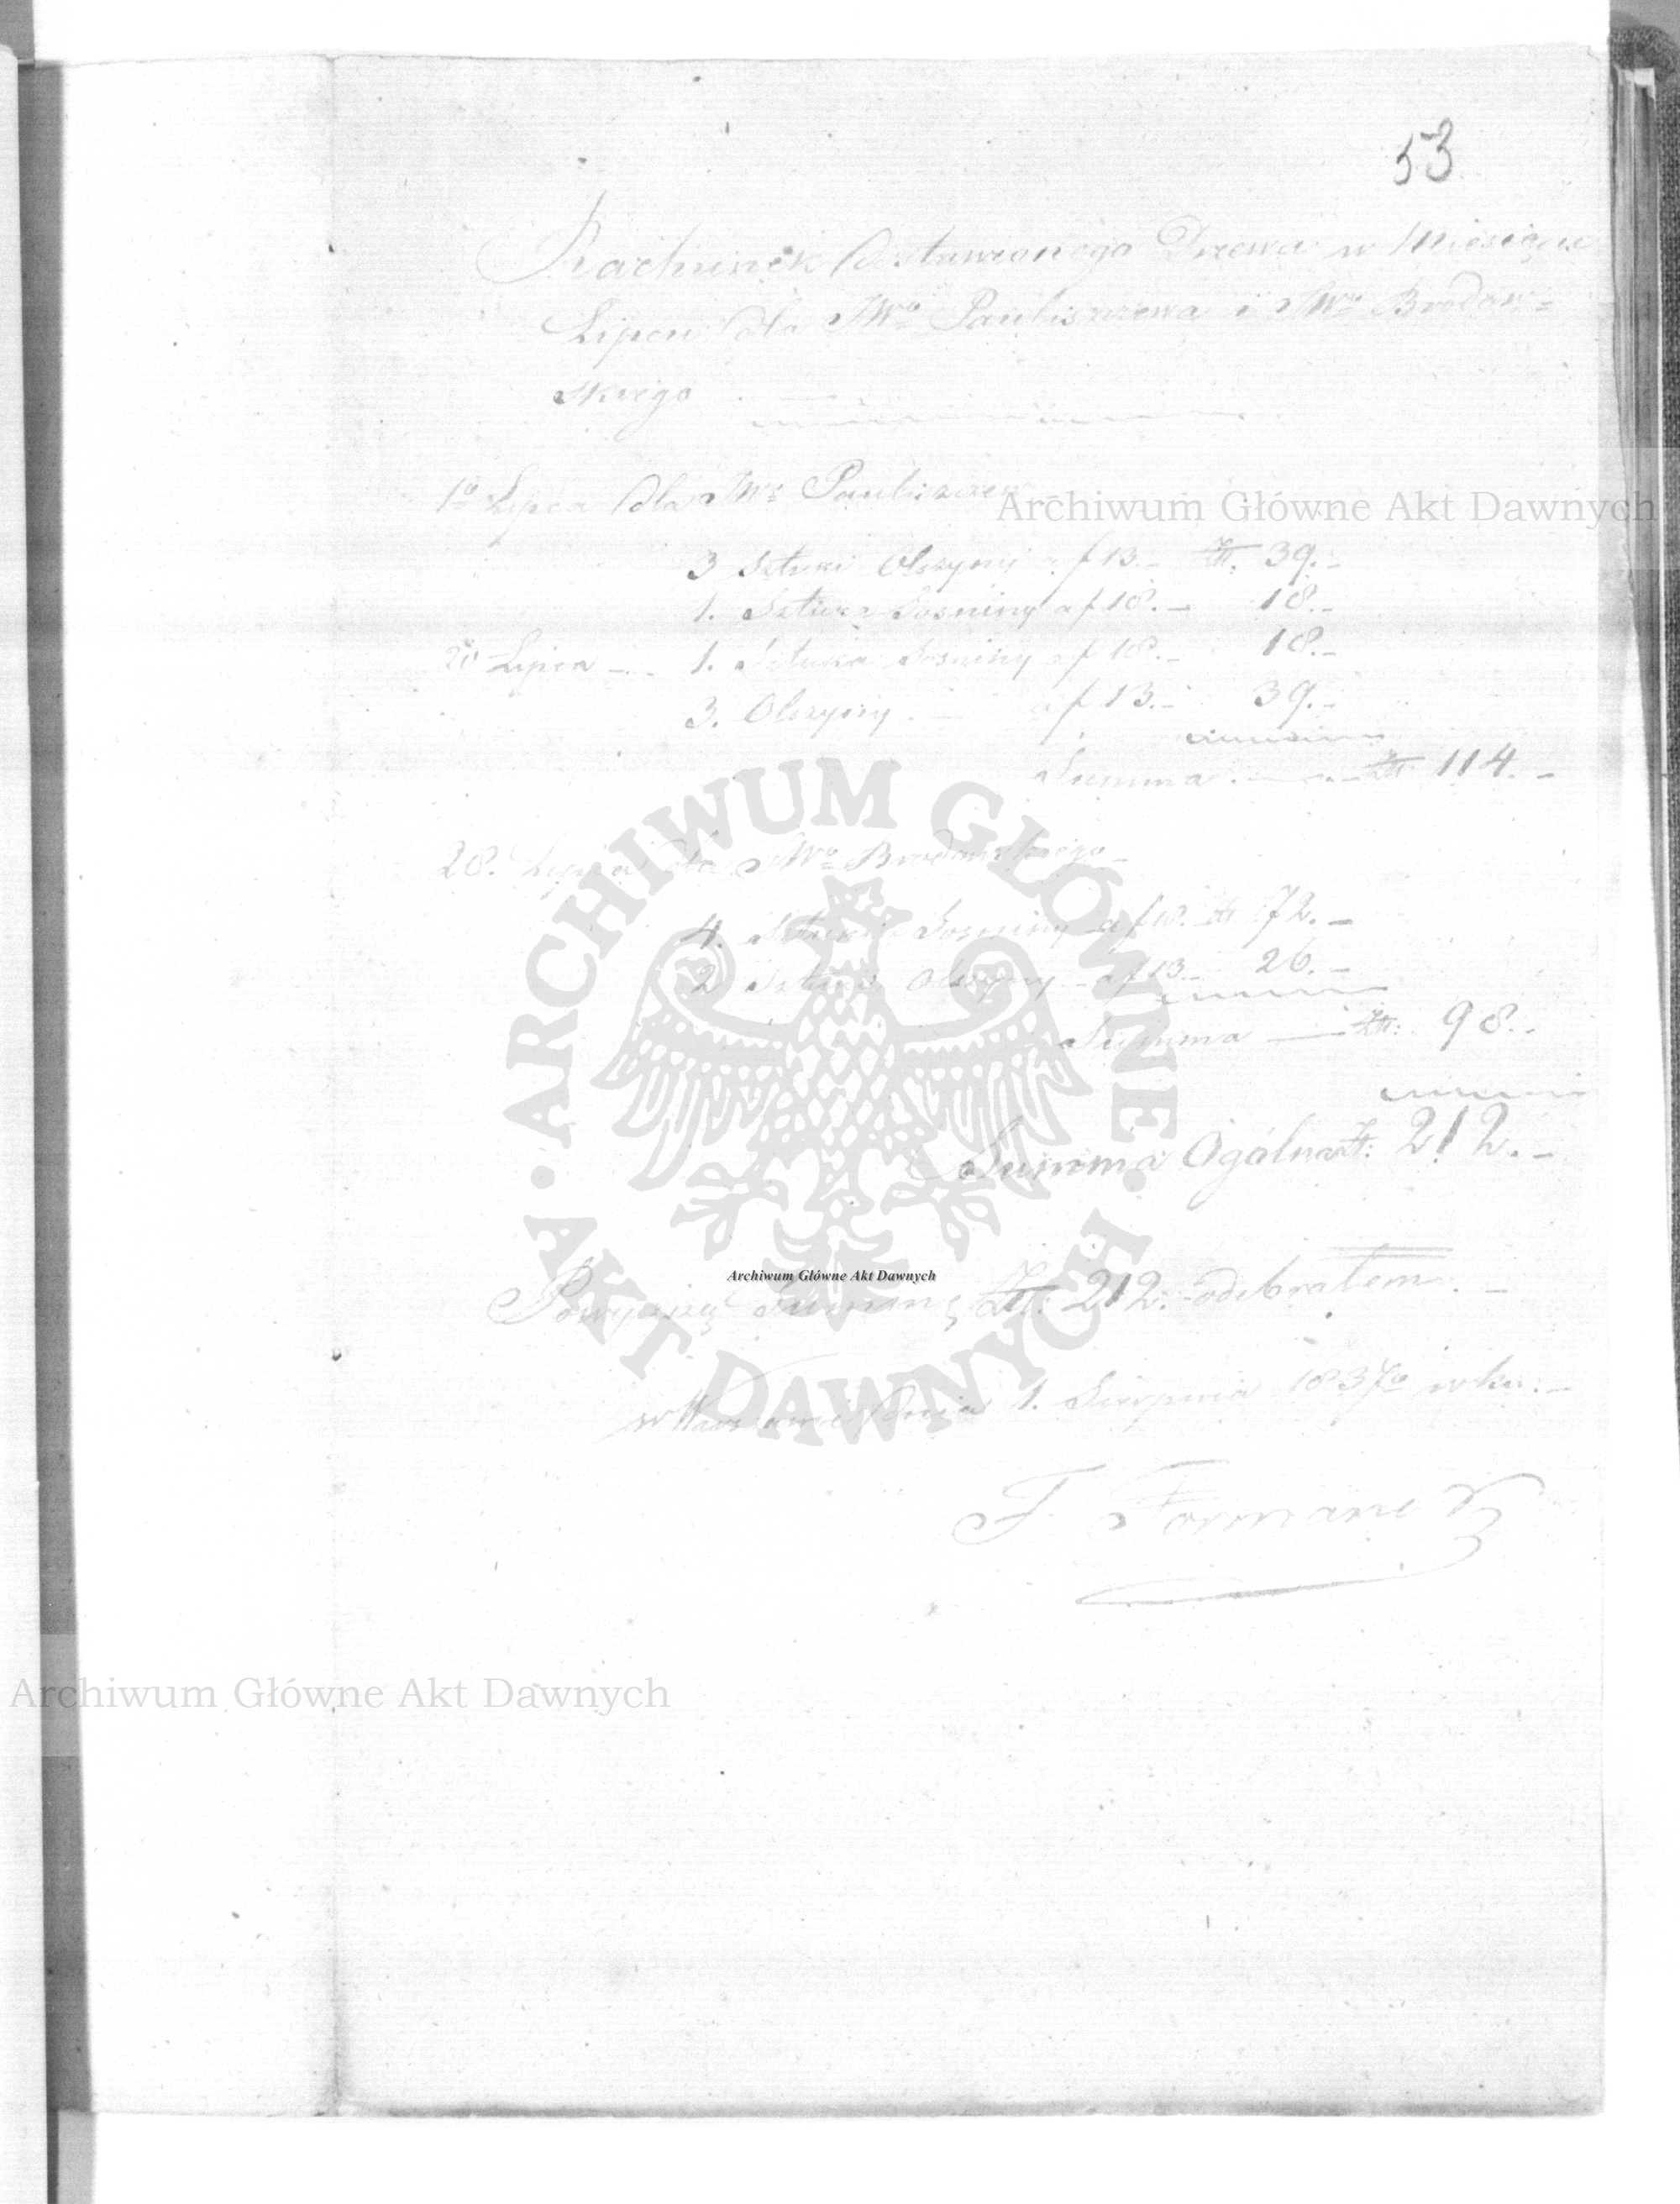 53
Rachunek dostawionego Drzewa w Miesiącu
Lipcu dla JWo Pauliszczewa i JWo Brodow=
skiego
1o Lipca dla JWo Pauliszczewa
Archiwum Główne Akt Dawnych
3 Sztuki Olszyny a f 13.- Zł. 39.-
1. Sztuka Sosniny a f 18.- 18.-
Lipca 1. Sztuka Sosniny a f 18.- 18.-
3. Olszyny a f 13.- 39.-
Summa Zł. 114.-
28. Lipca dla JWo Brodowskiego
4. Sztuki Sosniny a f 18. Zł 72.-
2 Sztuki Olszyny a f 13 26.-
Summa Zł. 98.-
Summa Ogólna Zł. 212.-
ARCHIWUM GŁÓWNE AKT DAWNYCH
Archiwum Główne Akt Dawnych
Powyższą Summę Zł. 212. odebrałem.-
w Warszawie dnia 1. Sierpnia 1837go roku.-
F.
Archiwum Główne Akt Dawnych